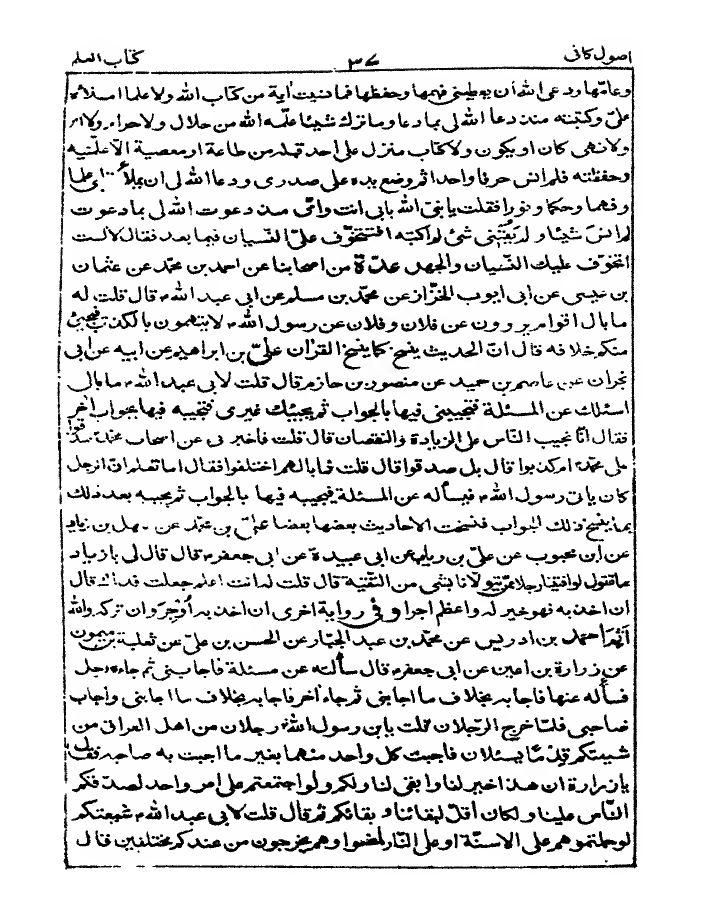 اصول كافى ٣٧ كتاب العلم
وعامّها ودعى الله أن يعطينى فهمها وحفظها فما نسيت آية من كتاب الله ولا علما املاه
علىّ وكتبته منذ دعا الله لى بما دعا وما ترك شيئا علّمه الله من حلال ولا حرام ولا امر
ولا نهى كان او يكون ولا كتاب منزل على احد قبله من طاعة او معصية الا علّمنيه
وحفظته فلم انس حرفا واحدا ثم وضع يده على صدرى ودعا الله لى ان يملأ قلبى علما
وفهما وحكما ونورا فقلت يا نبىّ الله بابى انت وامّى منذ دعوت الله لى بما دعوت
لم انس شيئا ولم يفتنى شئ لم اكتبه افتتخوّف علىّ النسيان فيما بعد فقال لا لست
اتخوّف عليك النسيان والجهل عدّة من اصحابنا عن احمد بن محمّد عن عثمان
بن عيسى عن ابى ايوب الخزّاز عن محمّد بن مسلم عن ابى عبد الله ع قال قلت له
ما بال اقوام يروون عن فلان وفلان عن رسول الله ص لا يتهمون بالكذب فيجئ
منكم خلافه قال انّ الحديث ينسخ كما ينسخ القرآن علىّ بن ابراهيم عن ابيه عن ابى
نجران عن عاصم بن حميد عن منصور بن حازم قال قلت لابى عبد الله ع ما بالى
اسئلك عن المسئلة فتجيبنى فيها بالجواب ثم يجيئك غيرى فتجيبه فيها بجواب آخر
فقال انّا نجيب النّاس على الزيادة والنقصان قال قلت فاخبرنى عن اصحاب محمّد صدقوا
على محمّد ص ام كذبوا قال بل صدقوا قال قلت فما بالهم اختلفوا فقال اما تعلم ان الرجل
كان ياتى رسول الله ص فيسأله عن المسئلة فيجيبه فيها بالجواب ثم يجيبه بعد ذلك
بما ينسخ ذلك الجواب فنسخت الاحاديث بعضها بعضا علىّ بن محمّد عن سهل بن زياد
عن ابن محبوب عن علىّ بن رياب عن ابى عبيدة عن ابى جعفر ع قال قال لى يا زياد
ما تقول لو افتينا رجلا ممّن يتولانا بشئ من التقيّة قال قلت له انت اعلم جعلت فداك قال
ان اخذ به فهو خير له واعظم اجرا وفى رواية اخرى ان اخذ به أوجر وان تركه والله
أثم احمد بن ادريس عن محمّد بن عبد الجبّار عن الحسن بن علىّ عن ثعلبة بن ميمون
عن زرارة بن اعين عن ابى جعفر ع قال سألته عن مسئلة فاجابنى ثم جاءه رجل
فسأله عنها فاجابه بخلاف ما اجابنى ثم جاء آخر فاجابه بخلاف ما اجابنى واجاب
صاحبى فلمّا خرج الرّجلان قلت يابن رسول الله رجلان من اهل العراق من
شيعتكم قدما يسئلان فاجبت كل واحد منهما بغير ما اجبت به صاحبه فقال
يا زرارة ان هذا خير لنا وابقى لنا ولكم ولو اجتمعتم على امر واحد لصدّقكم
النّاس علينا ولكان أقلّ لبقائنا وبقائكم ثم قال قلت لابى عبد الله ع شيعتكم
لو حملتموهم على الاسنّة او على النّار لمضوا وهم يخرجون من عندكم مختلفين قال